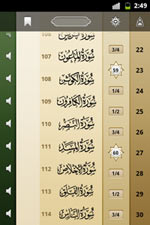 2:49
3/4 22
107 سورة الماعون
59 23
108 سورة الكوثر
1/4 24
109 سورة الكافرون
1/2 25
110 سورة النصر
3/4 26
111 سورة المسد
60 27
112 سورة الإخلاص
1/4 28
113 سورة الفلق
1/2 29
114 سورة الناس
3/4 30